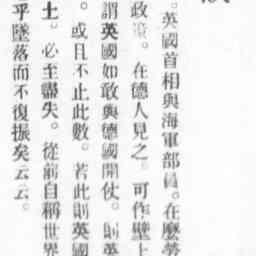 。英國首相與海軍部員。在麼勞
政策。在德人見之。可作壁上
謂英國如敢與德國開仗。則英
。或且不止此數。若此則英國
土。必至盡失。從前自稱世界
乎墜落而不復振矣云云。